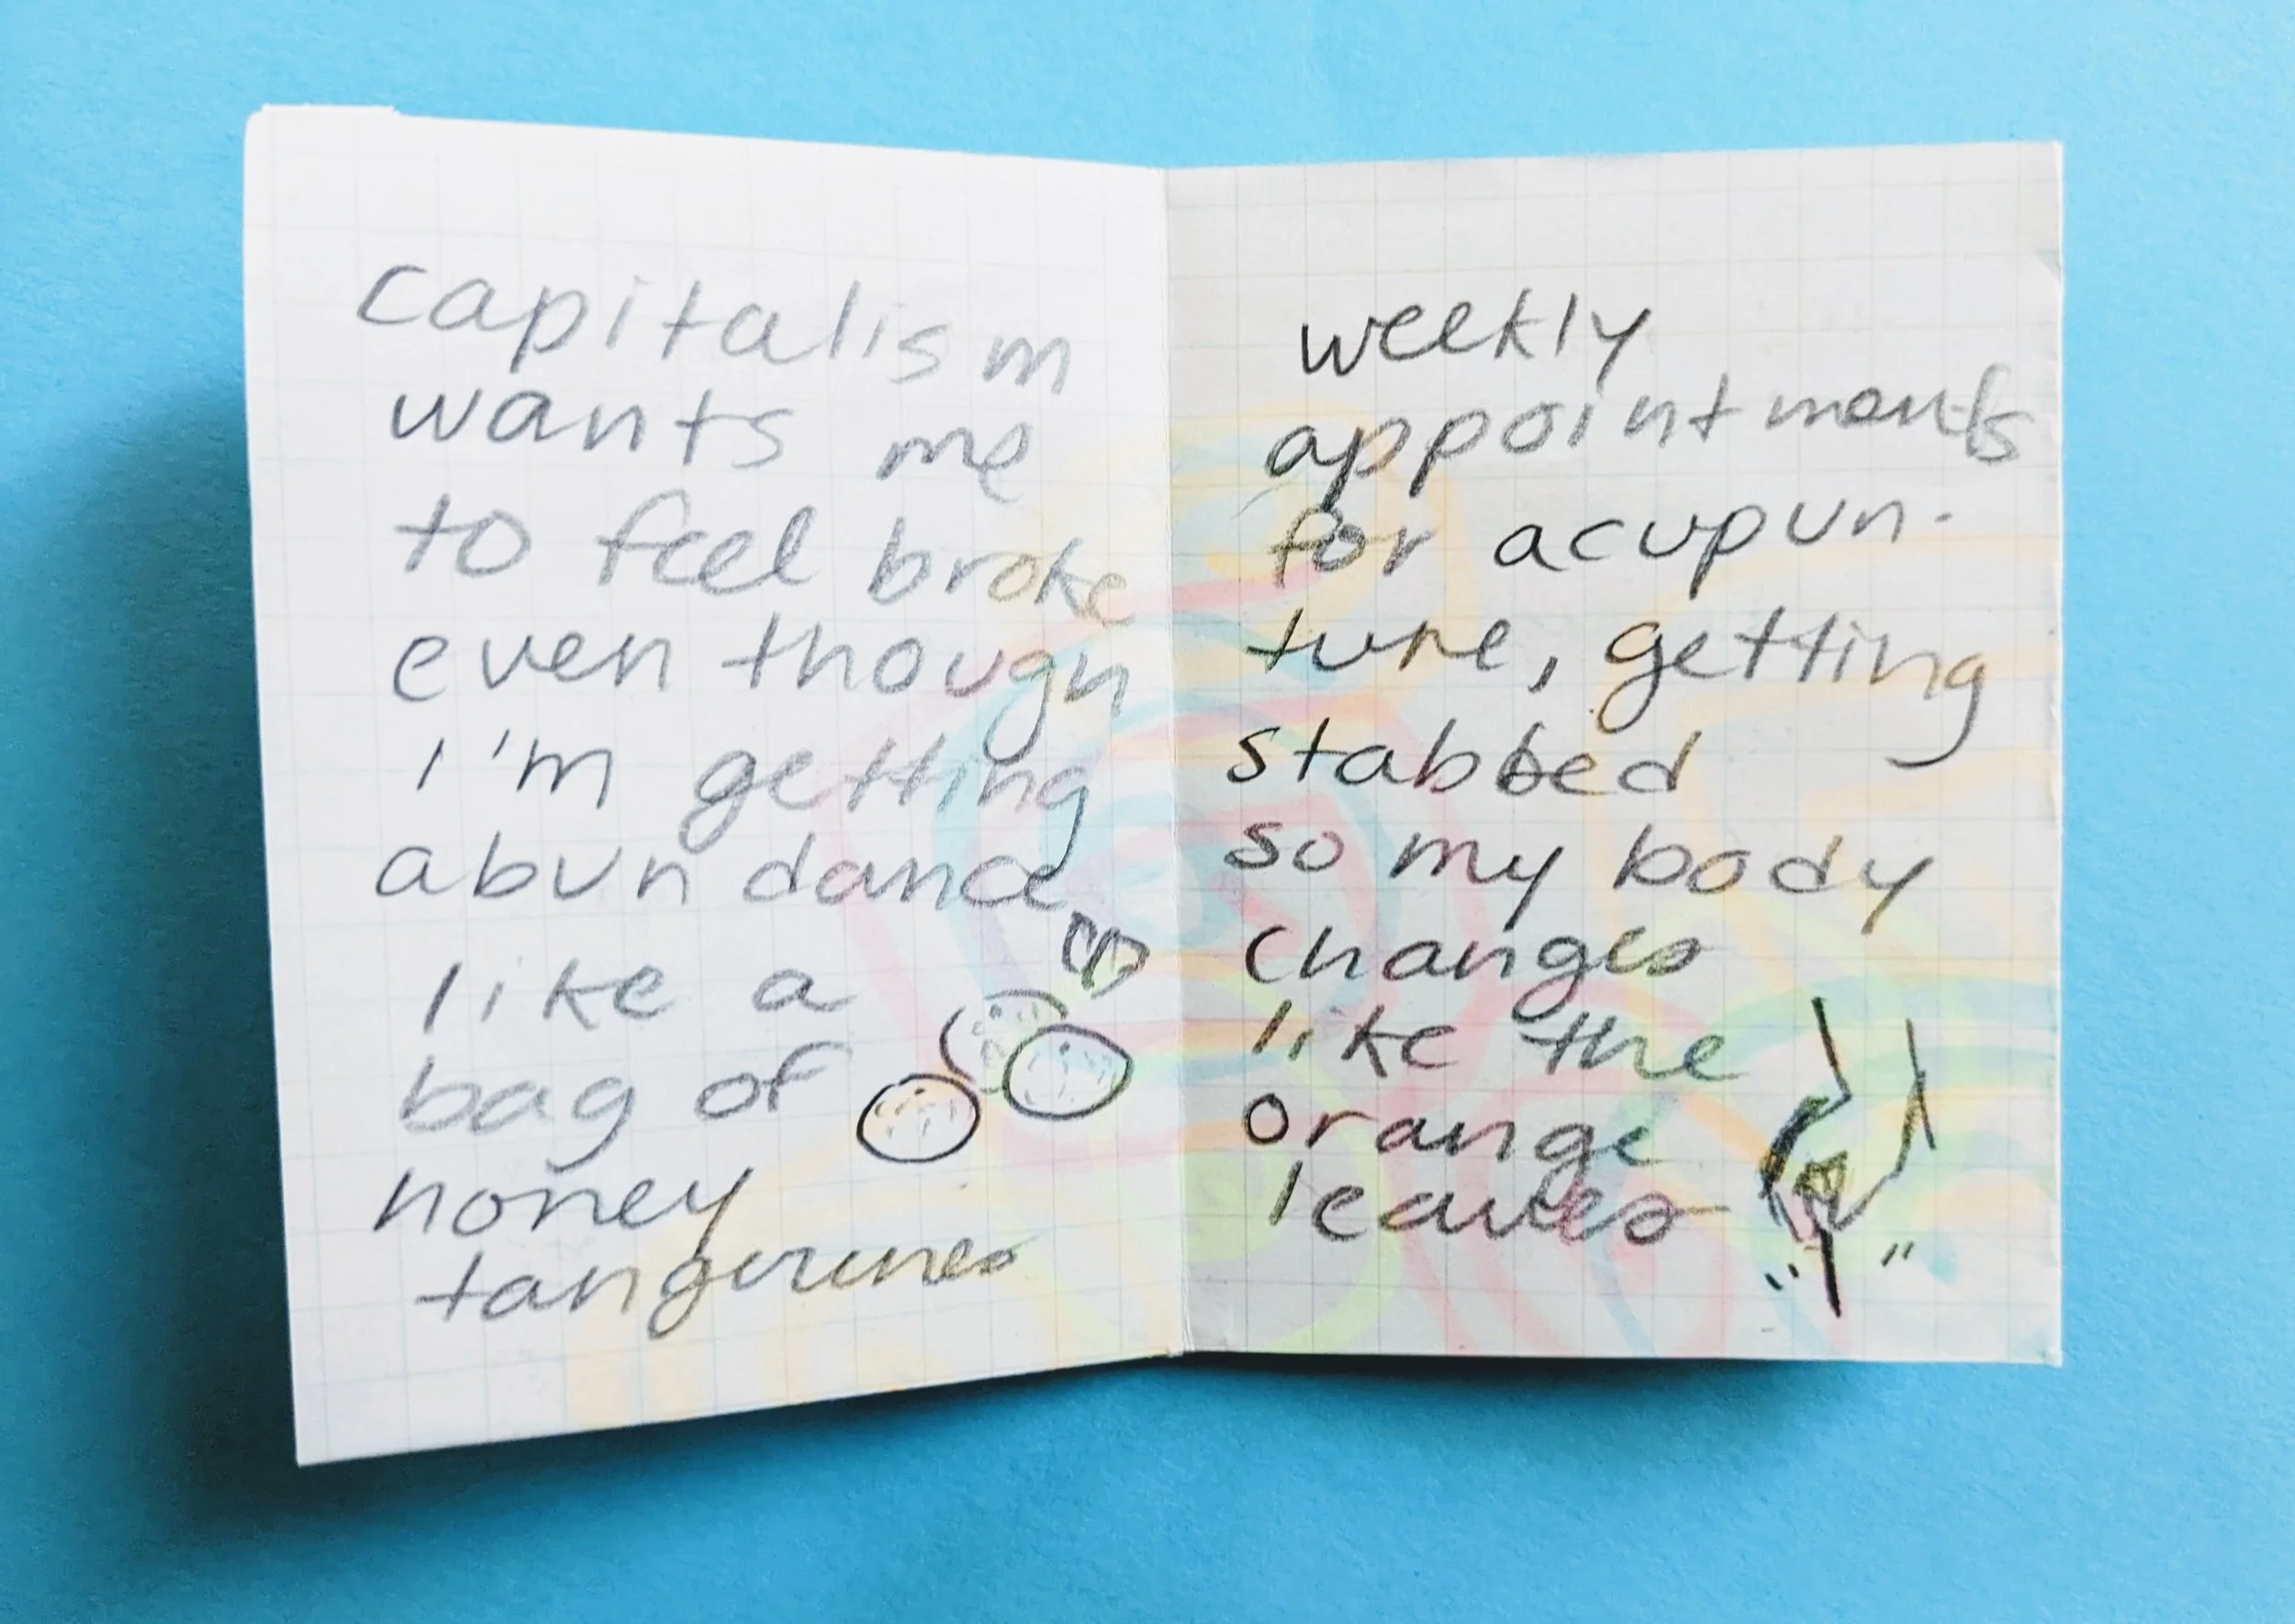 capitalism
wants me
to feel broke
even though
i'm getting
abundance
like a
bag of
honey
tangerines
weekly
appointments
for acupun-
ture, getting
stabbed
so my body
changes
like the
orange
leaves